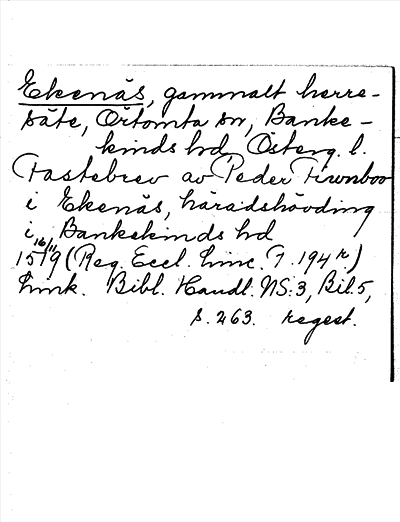 Ekenäs, gammalt herre-
säte, Örtomta sn, Banke-
kinds hd, Österg. l.
Fastebrev av Peder
i Ekenäs, häradshövding
i Bankekinds hd
15 16/11 19 (Reg. Eccl. Linc. 7. 194 r.)
Link. Bibl. Handl. NS:3, Bil. 5,
s. 263. regest.